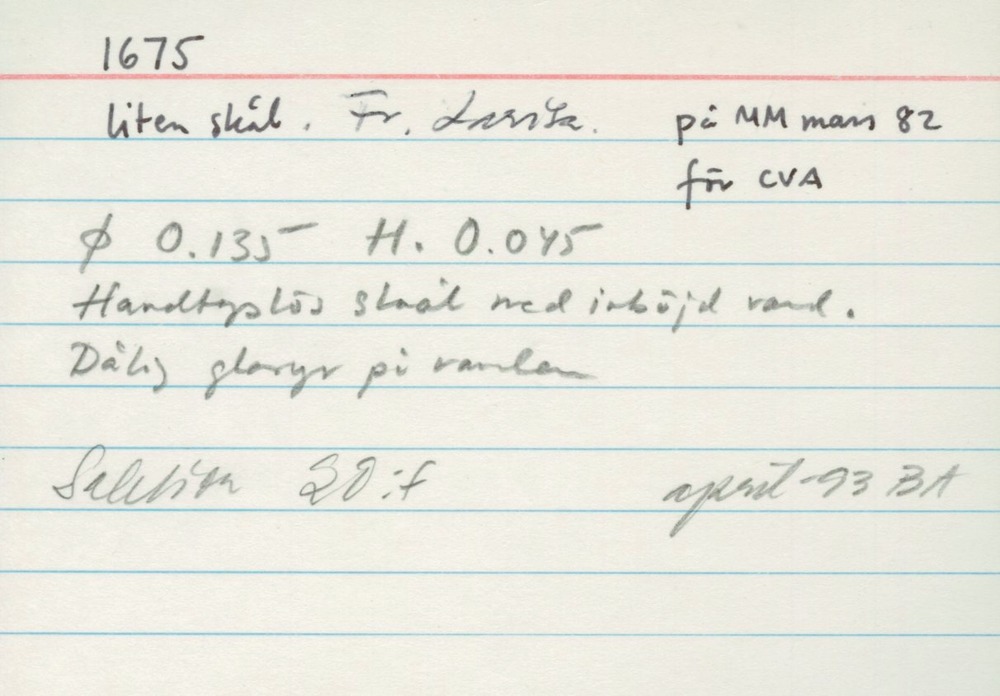 1675
liten skål. Fr. Larisa. på MM mars 82
för CVA
ϕ 0.135 H. 0.045
skål med inböjd rand.
Dålig glasyr på randen
Sektion 20:f april-93 BA